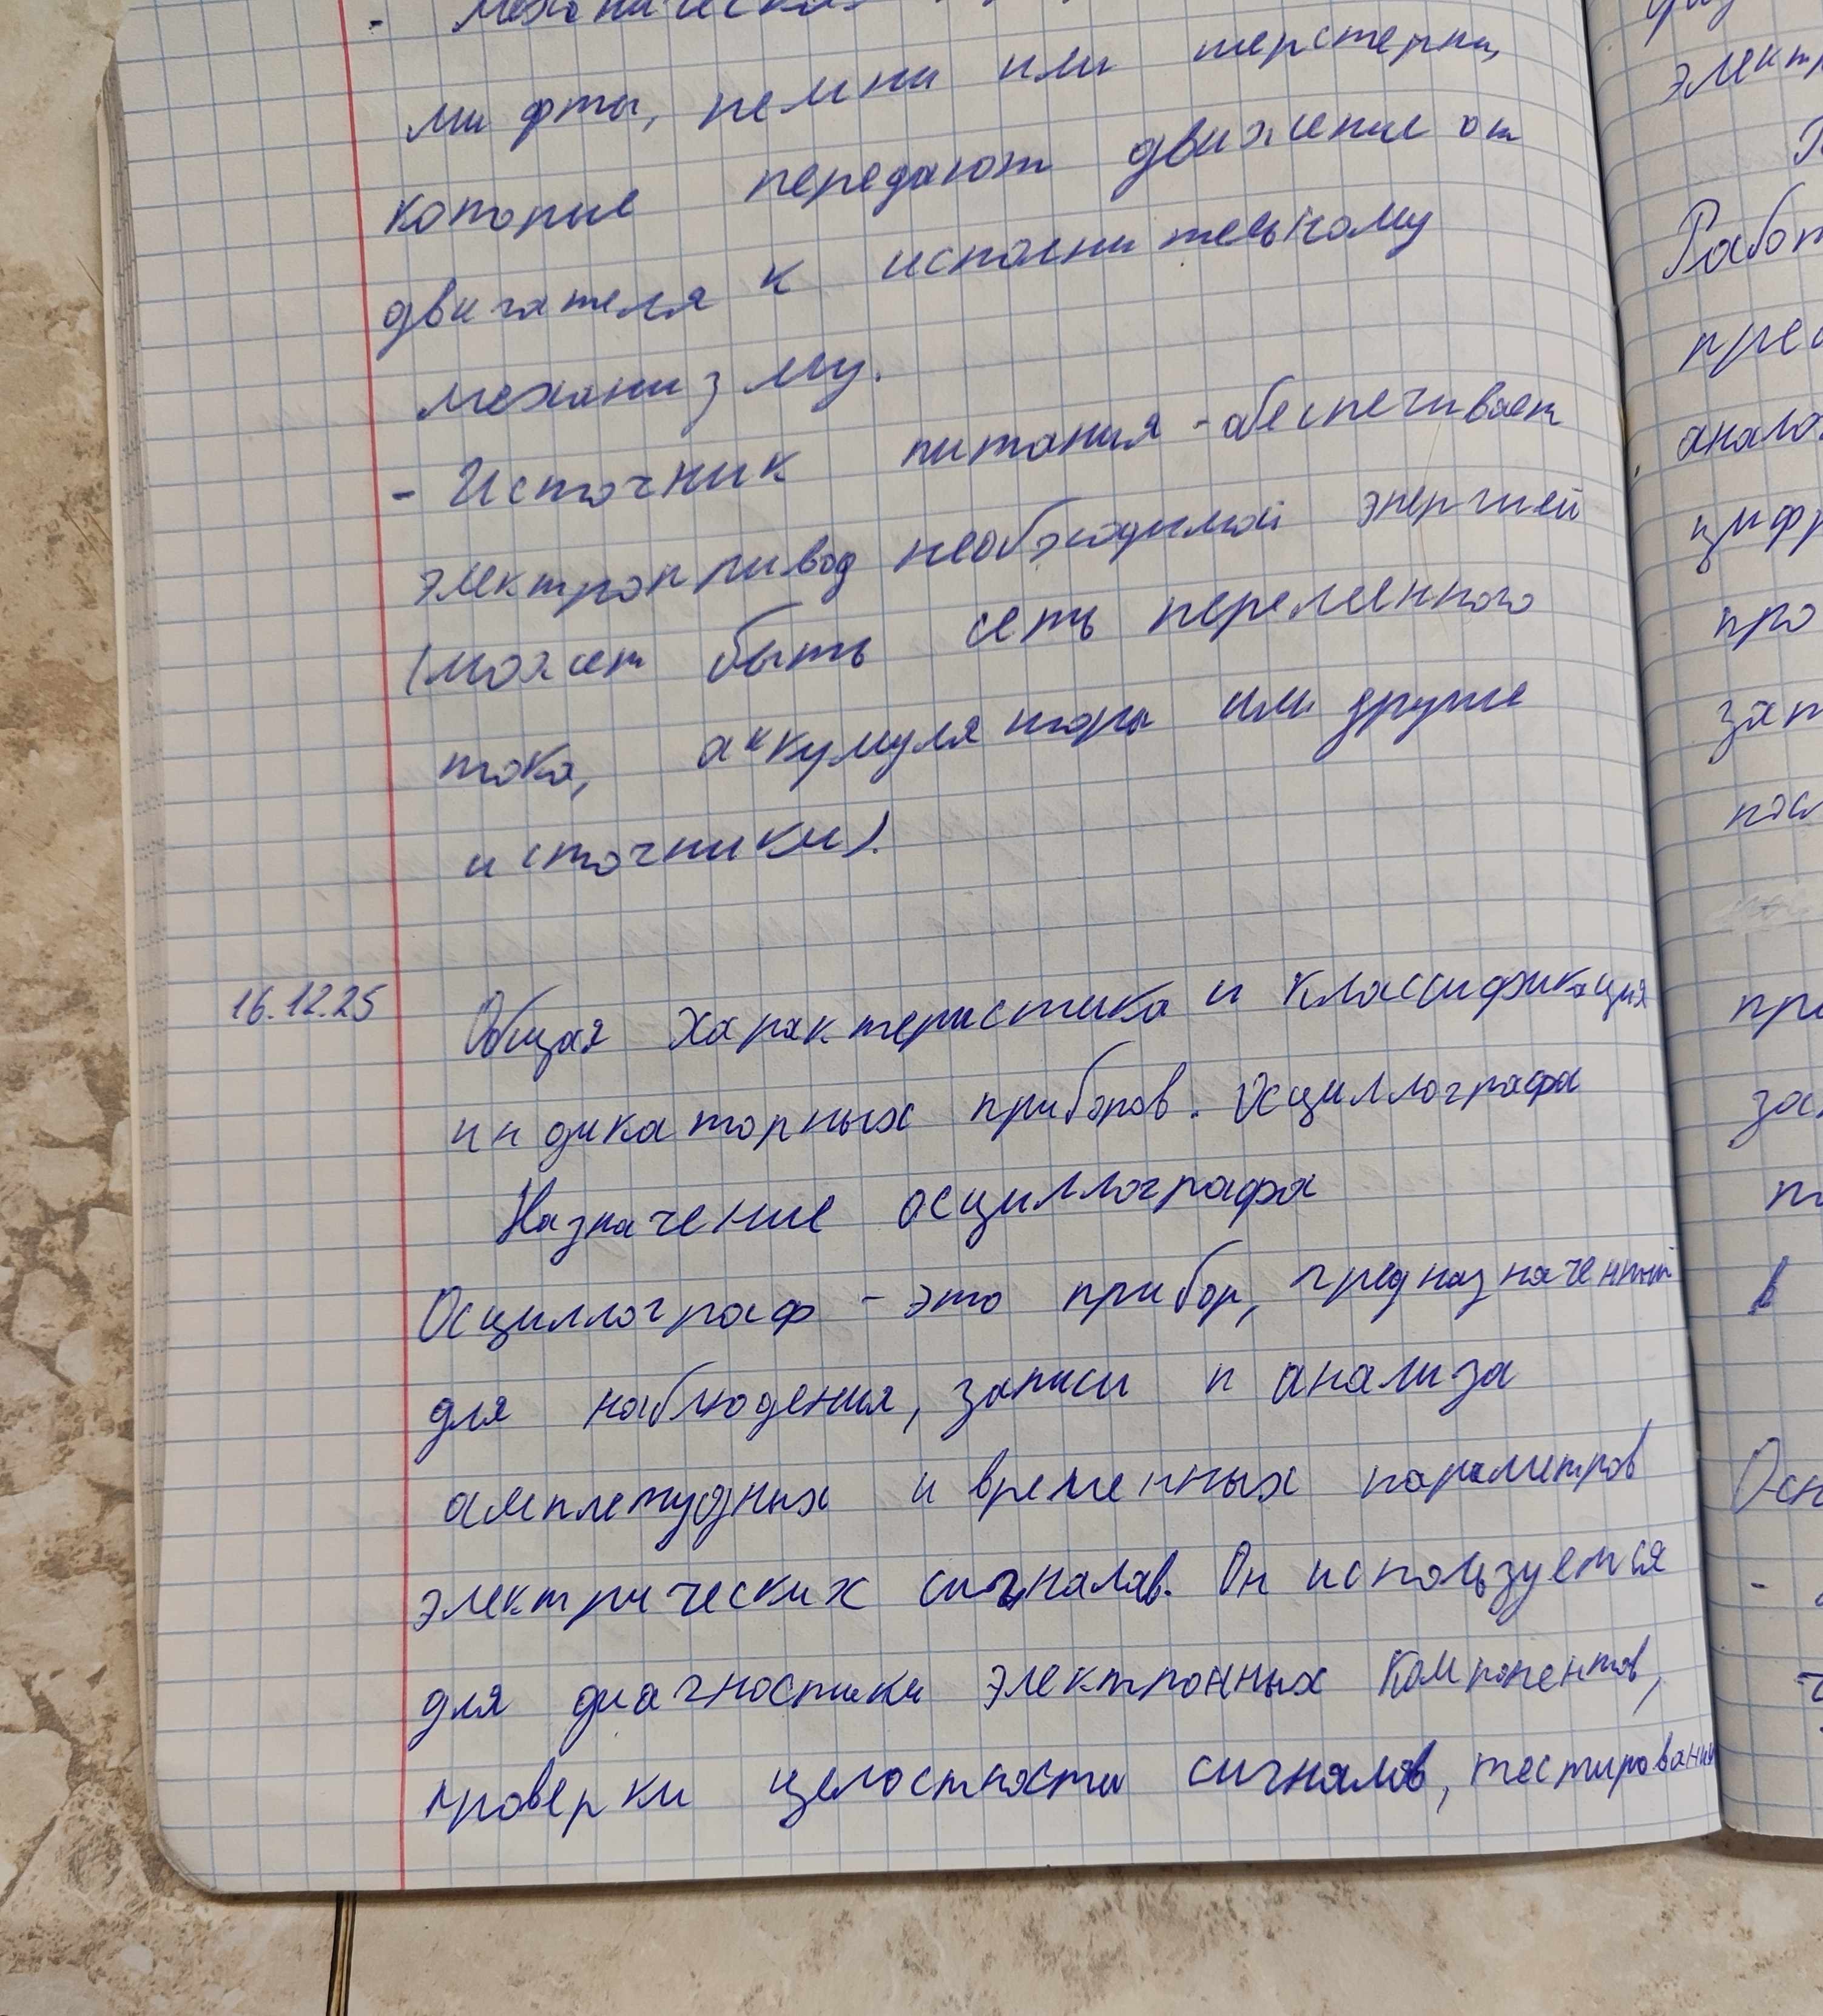 - механическая
муфты, ремни или шерстерни,
которые передают движение от
двигателя к исполнительному
механизму.
- Источник питания - обеспечивает
электропривод необходимой энергией
(может быть сеть переменного
тока, аккумуляторы или другие
источники).
16.12.25 Общая характеристика и классификация
индикаторных приборов. Осциллографа
Назначение осциллографа
Осциллограф - это прибор, предназначенный
для наблюдения, записи и анализа
амплетудных и временных параметров
электрических сигналов. Он используется
для диагностики электронных компонентов,
проверки целостности сигналов, тестирования